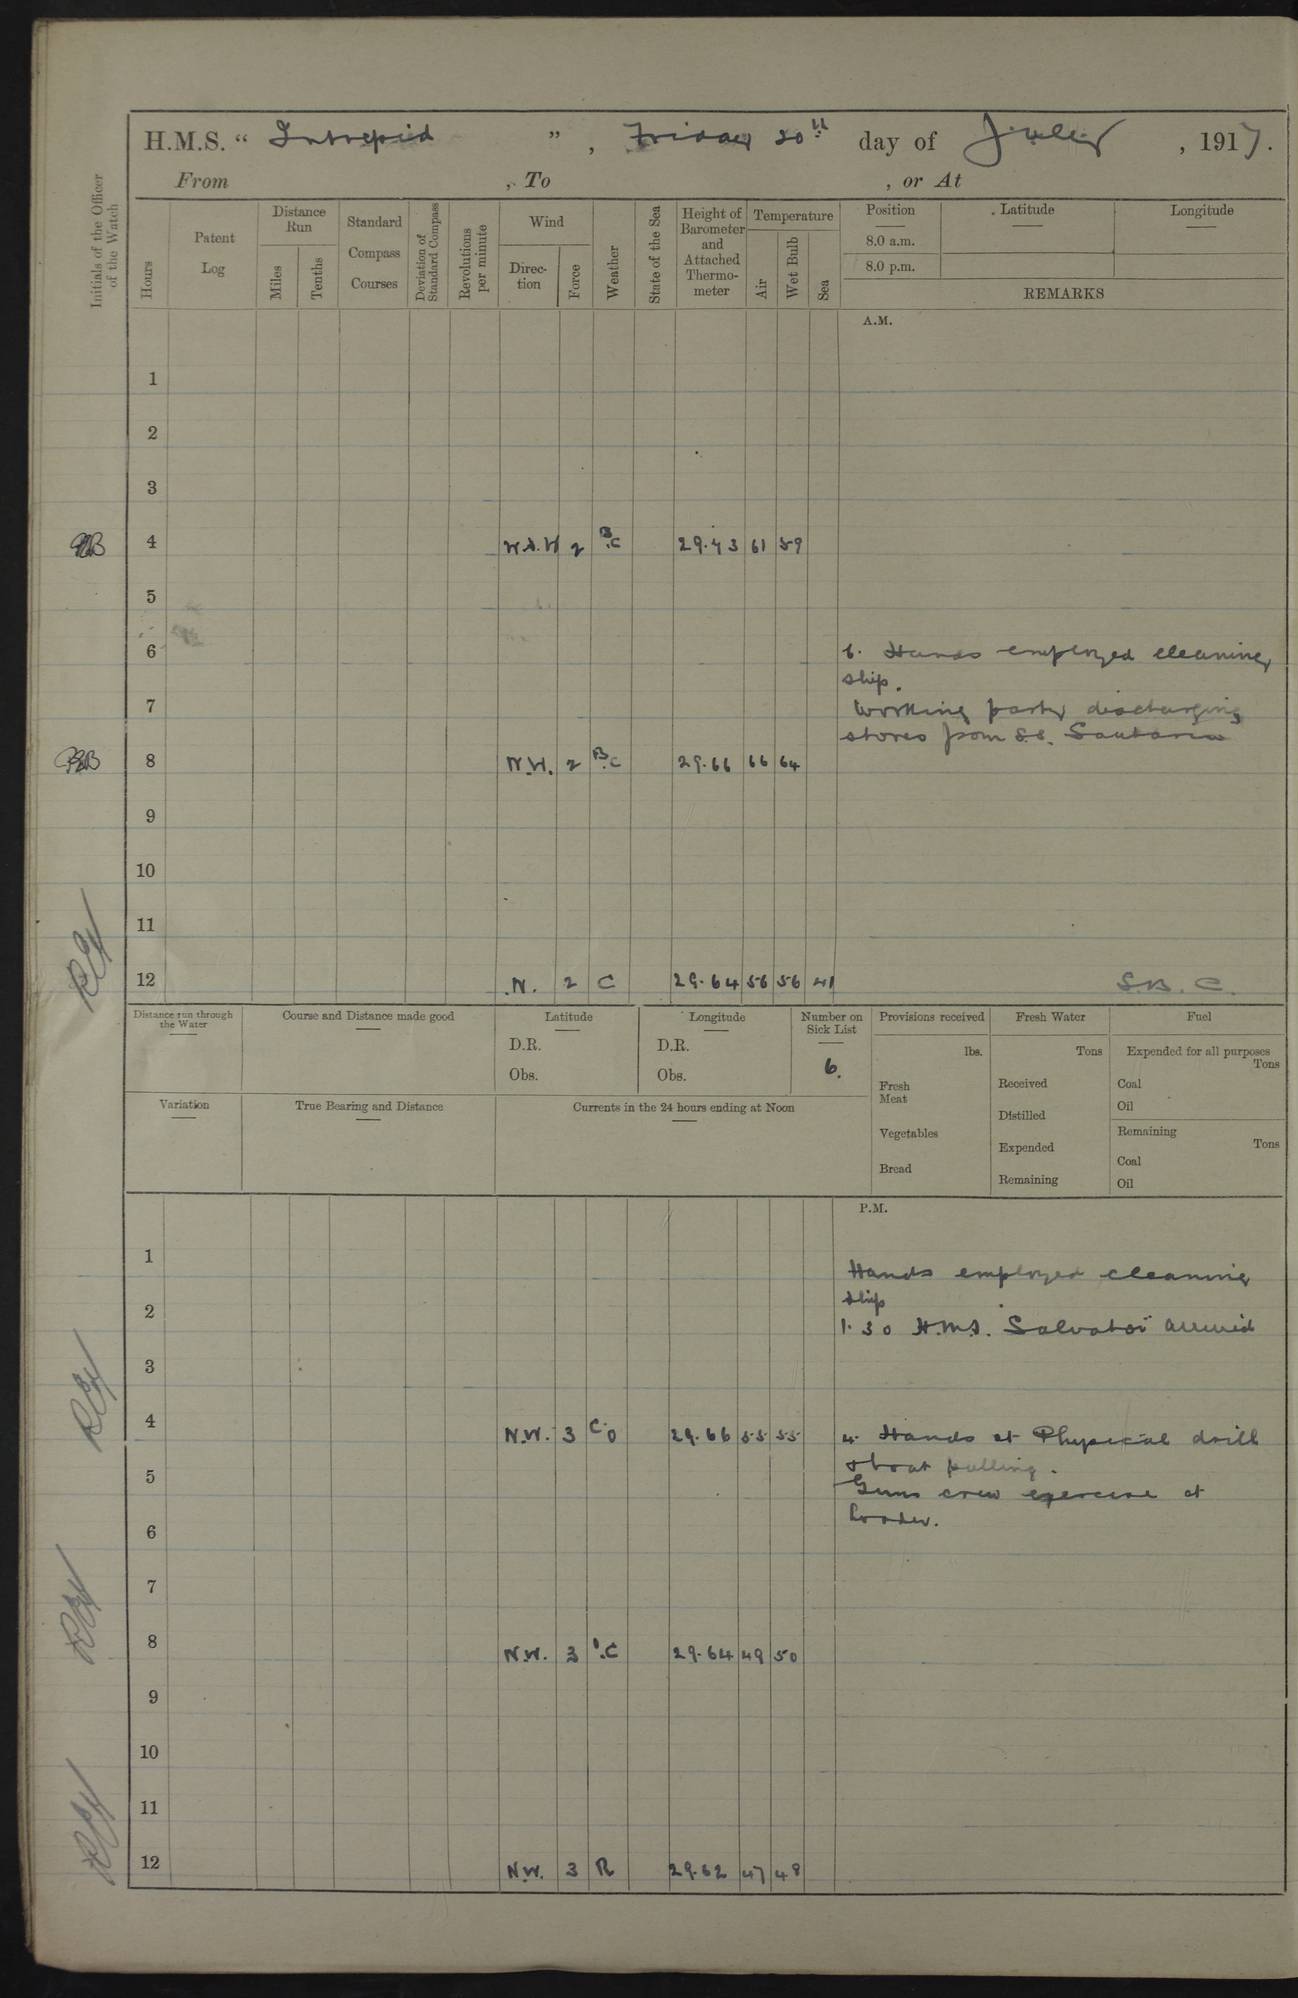 H.M.S. “ Intrepid ” , Friday 20th day of July , 1917.
From , To , or At
Initials of the Officer of the Watch
Hours
Patent Log
Distance Run
Miles
Tenths
Standard Compass Courses
Deviation of Standard Compass
Revolutions per minute
Wind
Direction
Force
Weather
State of the Sea
Height of Barometer and Attached Thermometer
Temperature
Air
Wet Bulb
Sea
Position
8.0 a.m.
8.0 p.m.
Latitude
Longitude
REMARKS
A.M.
1
2
3
4 W.S.W 2 B.C 29.43 61 59
5
6 6. Hands employed cleaning
ship.
7 Working party discharging
stores from S.S.
8 N.W. 2 B.C 29.66 66 64
9
10
11
12 N. 2 C 29.64 56 56 41 S.B.C.
Distance run through the Water
Course and Distance made good
Latitude
D.R.
Obs.
Longitude
D.R.
Obs.
Number on Sick List
6.
Provisions received
lbs.
Fresh Meat
Vegetables
Bread
Fresh Water
Tons
Received
Distilled
Expended
Remaining
Fuel
Expended for all purposes
Tons
Coal
Oil
Remaining
Tons
Coal
Oil
Variation
True Bearing and Distance
Currents in the 24 hours ending at Noon
P.M.
1
Hands employed cleaning
ship
2
1.30 H.M.S. Salvator arrived
3
4 N.W. 3 C.O 29.66 55 55 4. Hands at Physical drill
& boat pulling.
5
Guns crew exercise at
loader.
6
7
8 N.W. 3 .C 29.64 49 50
9
10
11
12 N.W. 3 R 29.62 47 48